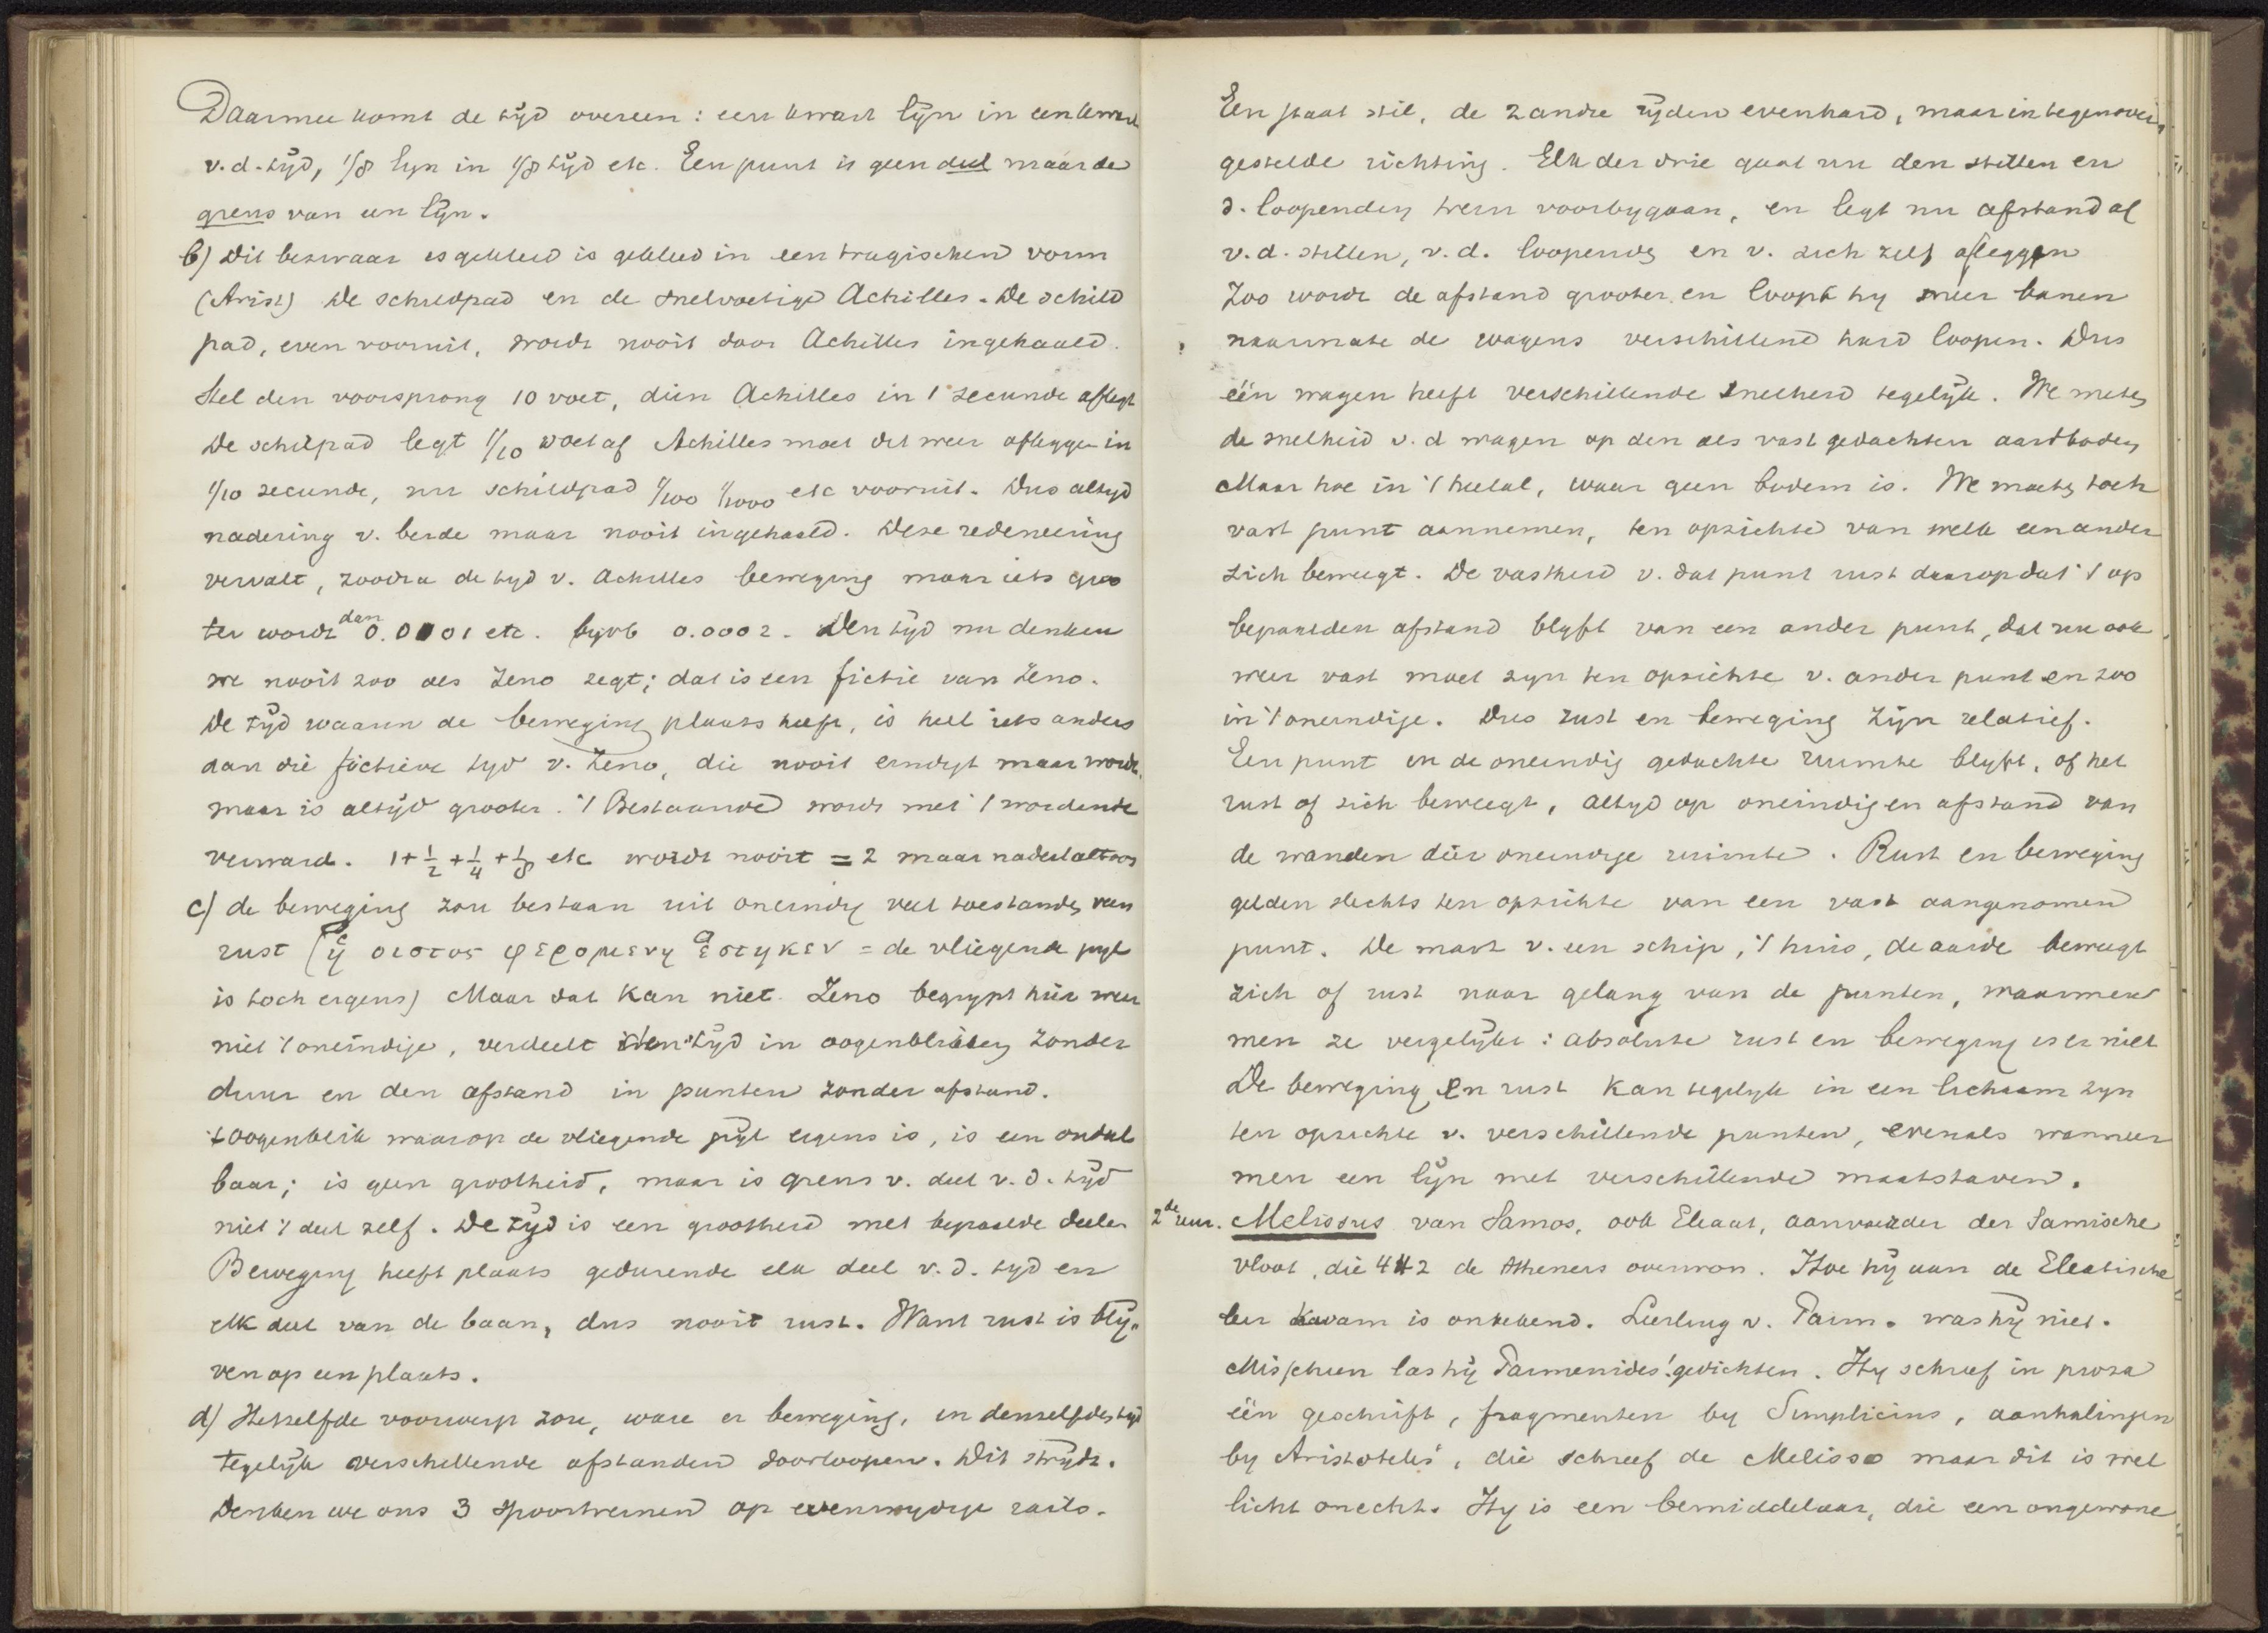 Daarmee komt de tijd overeen: een kwart lijn in een kwart
v.d. tijd, 1/8 lijn in 1/8 tijd etc. Een punt is geen deel maar de
grens van een lijn.
b) Dit bezwaar is gekleed in een tragischen vorm
(Arist) De schildpad en de snelvoetige Achilles. De schild
pad, even vooruit, wordt nooit door Achilles ingehaald.
Stel den voorsprong 10 voet, dien Achilles in 1 secunde aflegt
De schilpad legt 1/10 voet af Achilles moet dit weer afleggen in
1/10 secunde, nu schildpad 1/100 1/1000 etc vooruit. Dus altijd
nadering v. beide maar nooit ingehaald. Deze redeneering
vervalt, zoodra de tyd v. Achilles beweging maar iets groo
ter wordt dan 0.0001 etc. byvb 0.0002. Den tijd nu denken
we nooit zoo als Zeno zegt; dat is een fictie van Zeno.
De tijd waarin de beweging plaats heeft, is heel iets anders
dan die fictieve tyd v. Zeno, die nooit eindigt maar wordt,
maar is altijd grooter. 't Bestaande wordt met 't wordende
verward. 1+1/2+1/4+1/8 etc wordt nooit = 2 maar nadert altoos
c) de beweging zou bestaan uit oneindig veel toestanden van
rust (ἡ οιστος φερομενη ἑστηκεν = de vliegende pyl
is toch ergens) Maar dat kan niet. Zeno begrypt hier weer
niet 't oneindige, verdeelt den tijd in oogenblikken zonder
duur en den afstand in punten zonder afstand.
't oogenblik waarop de vliegende pijl ergens is, is een ondeel
baar; is geen grootheid, maar is grens v. deel v. d. tijd
niet 't deel zelf. De tijd is een grootheid met bepaalde deelen
Beweging heeft plaats gedurende elk deel v. d. tyd en
elk deel van de baan, dus nooit rust. Want rust is blij„
ven op een plaats.
d) Hetzelfde voorwerp zou, ware er beweging, in denzelfden tyd
tegelijk verschillende afstanden doorloopen. Dit strydt.
Denken we ons 3 spoortreinen op evenwydige rails.
Een staat stil, de 2 andre rijden evenhard, maar in tegenover„
gestelde richting. Elk der drie gaat nu den stillen en
d. loopenden trein voorbygaan, en legt nu afstand af
v.d. stillen, v.d. loopende en v. zich zelf afleggen
Zoo wordt de afstand grooter en loopt hy meer banen
naarmate de wagens verschillend hard loopen. Dus
één wagen heeft verschillende snelheid tegelijk. We meten
de snelheid v.d wagen op den als vast gedachten aardbodem
Maar hoe in 't heelal, waar geen bodem is. We moeten toch
vast punt aannemen, ten opzichte van welk een ander
zich beweegt. De vastheid v. dat punt rust daarop dat 't op
bepaalden afstand blyft van een ander punt, dat nu ook
weer vast moet zyn ten opzichte v. ander punt en zoo
in 't oneindige. Dus rust en beweging zijn relatief.
Een punt in de oneindig gedachte ruimte blyft, of het
rust of zich beweegt, altyd op oneindigen afstand van
de wanden dier oneindige ruimte. Rust en beweging
gelden slechts ten opzichte van een vast aangenomen
punt. De mast v. een schip, 't huis, de aarde beweegt
zich of rust naar gelang van de punten, waarmee
men ze vergelijkt: absolute rust en beweging is er niet
De beweging en rust kan tegelyk in een lichaam zyn
ten opzichte v. verschillende punten, evenals wanneer
men een lijn met verschillende maatstaven.
2de uur. Melissus van Samos, ook Eleaat, aanvoerder der Samische
vloot, die 442 de Atheners overwon. Hoe hij aan de Eleatische
leer kwam is onbekend. Leerling v. Parm. was hij niet.
Misschien las hij Parmenides' gedichten. Hy schreef in proza
één geschrift, fragmenten by Simplicius, aanhalingen
by Aristoteles, die schreef de Melisso maar dit is wel
licht onecht. Hy is een bemiddelaar, die een ongewone